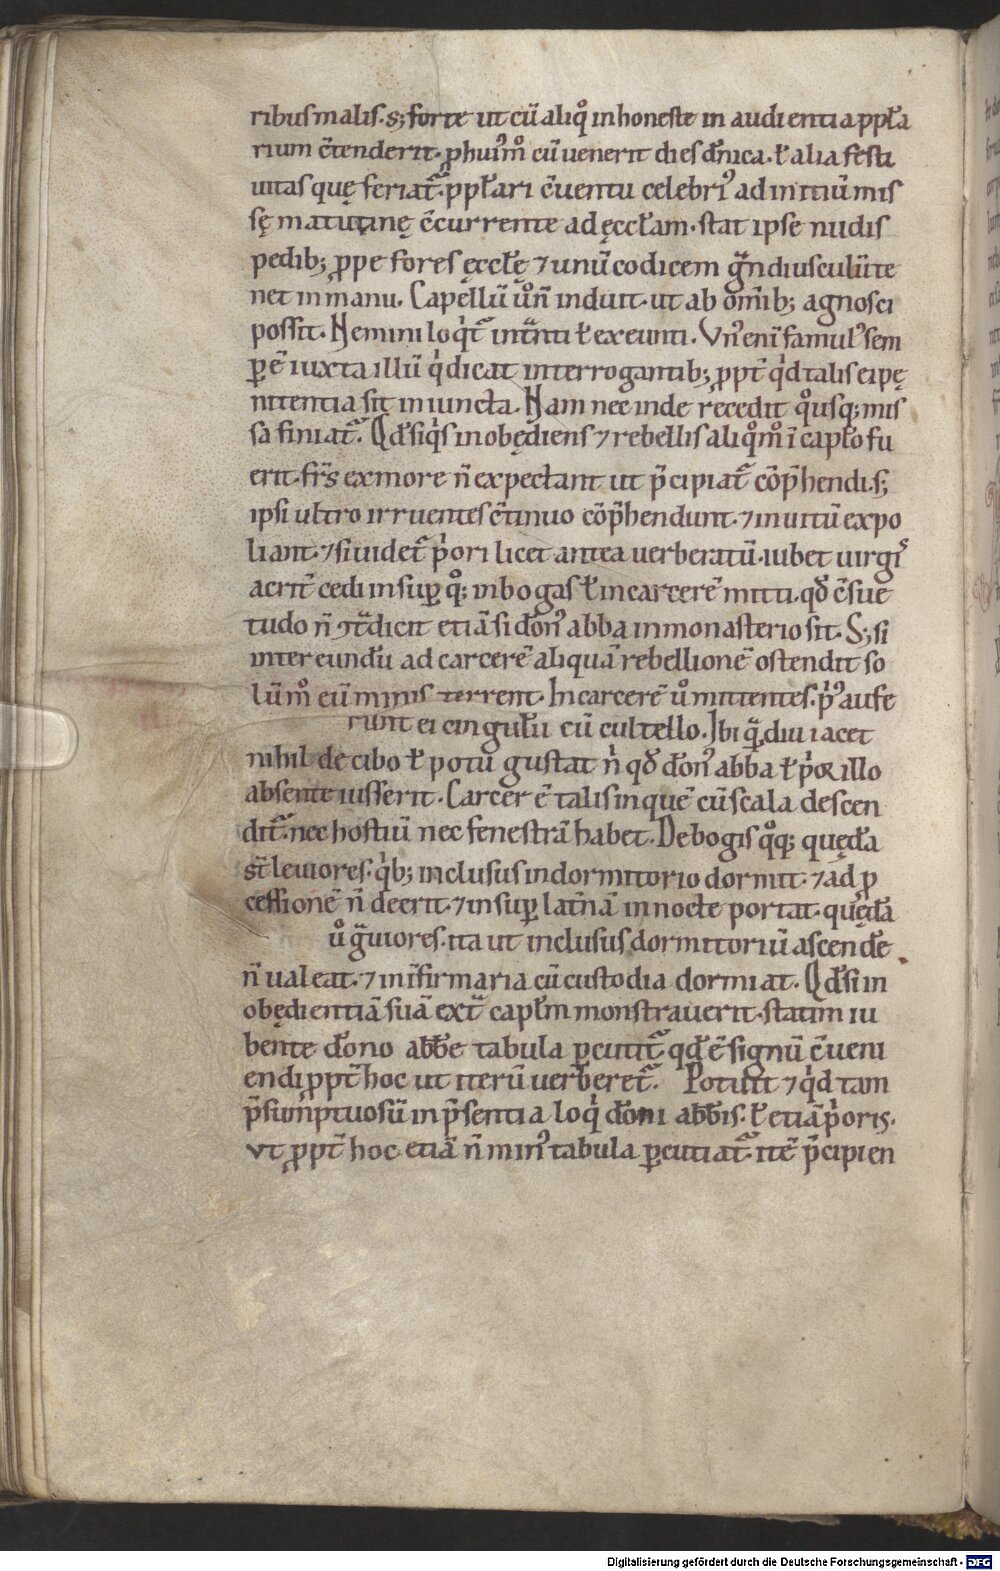 ribus malis. s; forte ut cū aliq̊ inhoneste in audientia ppl̄a
rium c̄tenderit. ꝓ huiꝰm̊ cū uenerit dies dn̄ica. ł alia festi
uitas quę feriat᷑. ppl̄ari c̄uentu celebriꝰ ad initiū mis
sę matutinę c̄currente ad ęccl̄am. stat ipse nudis
pedib; ꝓpe fores ęccl̄ę ⁊ unū codicem g̃ndiusculū te
net in manu. Capellū ů n̄ induit. ut ab om̄ib; agnosci
possit. Nemini loqͥt᷑ int̃nti ł exeunti. Vnꝰ eni famulꝰ sem
ꝑ ē iuxta illū qͥ dicat interrogantib; ꝓpt̄ qͥd talis ei pę
nitentia sit iniuncta. Nam nec inde recedit q̊usq; mis
sa finiat᷑. Qd̄ siqͥs inobędiens ⁊ rebellis aliq̊m̊ ī capl̄o fu
erit. fr̄s ex more n̄ expectant ut p̄cipiat᷑ cōp̄hendi. s;
ipsi ultro irruentes c̄tinuo cōp̄hendunt. ⁊ inuitū expo
liant. ⁊ si uidet᷑ pͥori licet antea uerberatū. iubet uirgiꝰ
acrit̄ cedi insuꝑ q̊; in bogas ł in carcerē mitti. qđ c̄sue
tudo n̄ ɔt̃dicit etiā si don̄ꝰ abba in monasterio sit. S; si
inter eundū ad carcerē aliquā rebellionē ostendit so
lūm̊ eū minis terrent. In carcerē ů mittentes. pͥꝰ aufe
runt ei cingulū cū cultello. Ibi q̃ diu iacet
nihil de cibo ł potu gustat n̄ qđ don̄ꝰ abba ł pͥor illo
absente iusserit. Carcer ē talis in quē cū scala descen
dit᷑. nec hostiū nec fenestrā habet. De bogis q̊q; quęda
st̄ leuiores. qͥb; inclusus in dormitorio dormit. ⁊ ad ꝓ
cessionē n̄ deerit. ⁊ insuꝑ lat̄nā in nocte portat. quęda
ů g̃uiores. ita ut inclusus dormitoriū ascendē
n̄ ualeat. ⁊ in īfirmaria cū custodia dormiat. Qd̄ si in
obędientiā suā ext̃ capl̄m monstrauerit. statim iu
bente dōno abb̄e tabula ꝑcutit᷑ qd̄ ē signū c̄ueni
endi ꝓpt̄ hoc ut iterū uerberet᷑. Potuit ⁊ qͥd tam
p̄sumptuosū in p̄sentia loqͥ doni abb̄is. ł etiā pͥoris.
vt ꝓpt̄ hoc etiā n̄ minꝰ tabula ꝑcutiat᷑. itē p̄cipien
Digitalisierung gefördert durch die Deutsche Forschungsgemeinschaft - DFG